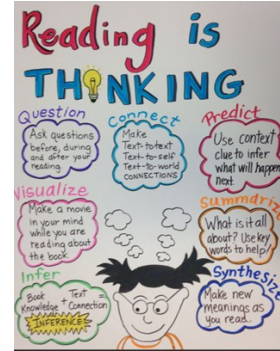 Reading is
THINKING
Question
Ask questions
before, during
and after your
reading
Connect
Make
Text-to-text
Text-to-self
Text-to-world
CONNECTIONS
Predict
Use context
clue to infer
what will happen
next
Visualize
Make a movie
in your mind
while you are
reading about
the book.
Summarize
What is it all
about? Use key
words to help!
Infer
Book Knowledge + Text Connection =
INFERENCE
Synthesize
Make new
meanings as
you read.